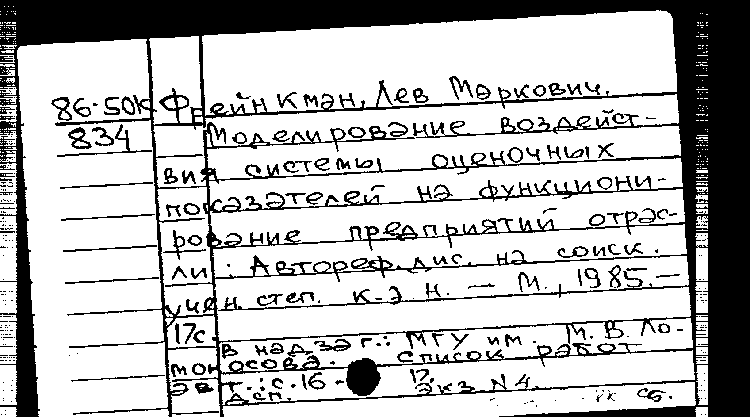 86-50К Фрейнкман, Лев Маркович.
834 Моделирование воздейст-
вия системы оценочных
показателей на функциони-
рование предприятий отрас-
ли: Автореф. дис. на соиск.
учен. степ. к. э. н. — М., 1985. —
17 с.
В надзаг.: МГУ им. М. В. Ло-
моносова. Список работ
авт.: с. 16-17.
Дсп. Экз N 4.
РК сб.